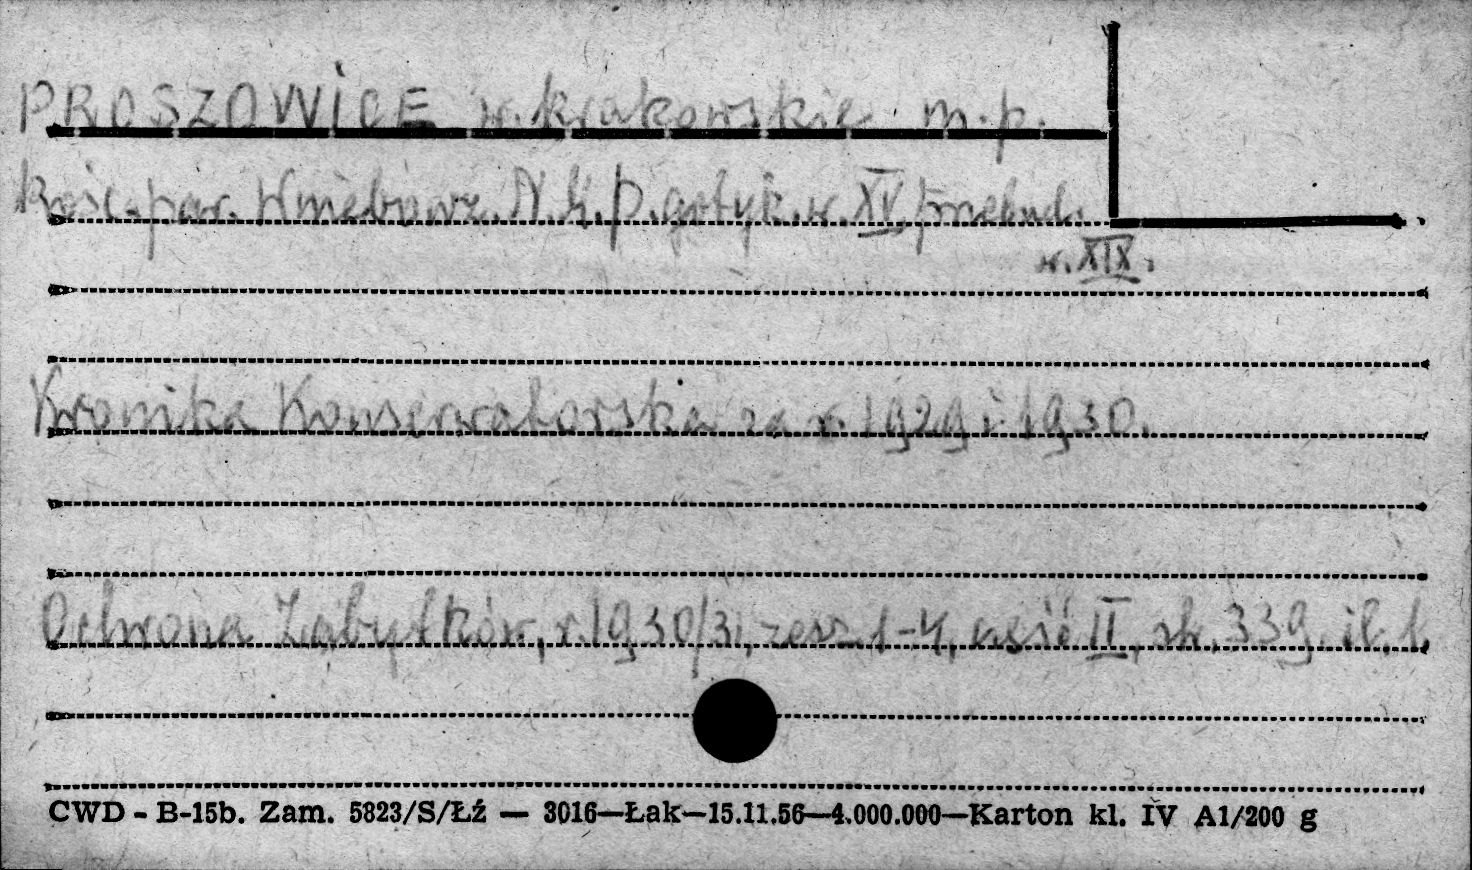 PROSZOWICE w. krakowskie m.p.
Kość. par. Wniebowz. N.M.P. gotyk. w. XV, przebud.
w. XIX.
Kronika Konserwatorska za r. 1929 i 1930.
Ochrona Zabytków, r. 1930/31, zesz. 1-4, część II, str. 339. il. 1.
CWD - B-15b. Zam. 5823/S/Łź — 3016—Łak—15.11.56—4.000.000—Karton kl. IV A1/200 g